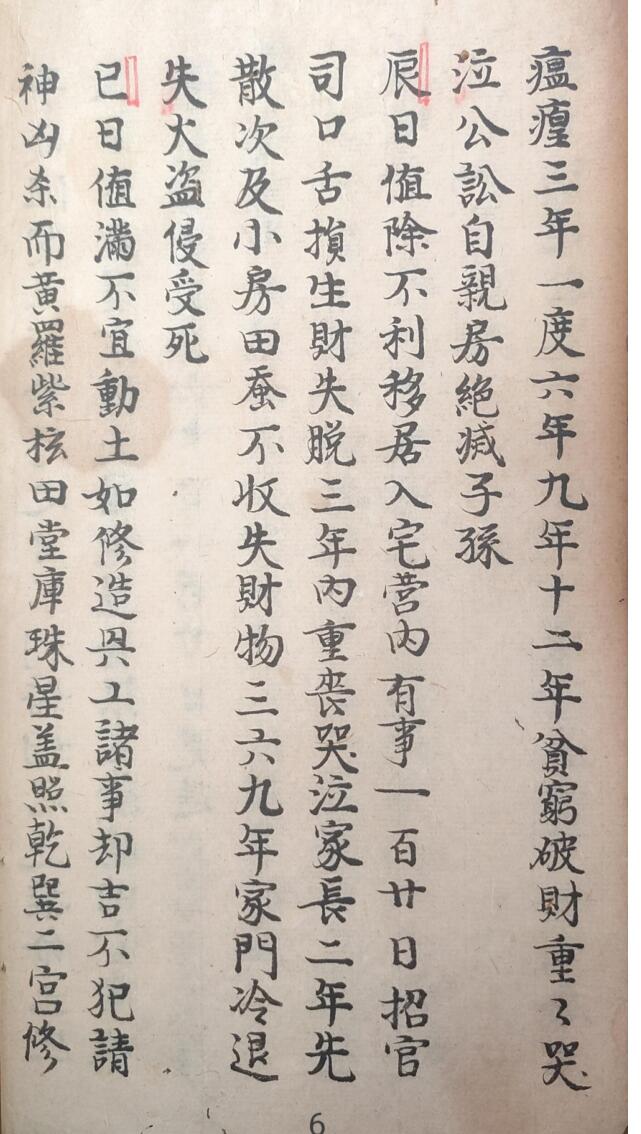 瘟𤶊三年一度六年九年十二年貧窮破財重〻哭
泣公訟自親房絕滅子孫
辰日值除不利移居入宅营內有事一百廿日招官
司口舌損生財失脫三年內重丧哭泣家長二年先
散次及小房田蚕不收失財物三六九年家門冷退
失火盜侵受死
巳日值滿不宜動土如修造兴工諸事却吉不犯請
神凶杀而黃羅紫柱田堂庫珠星盖照乾巽二宮修
6